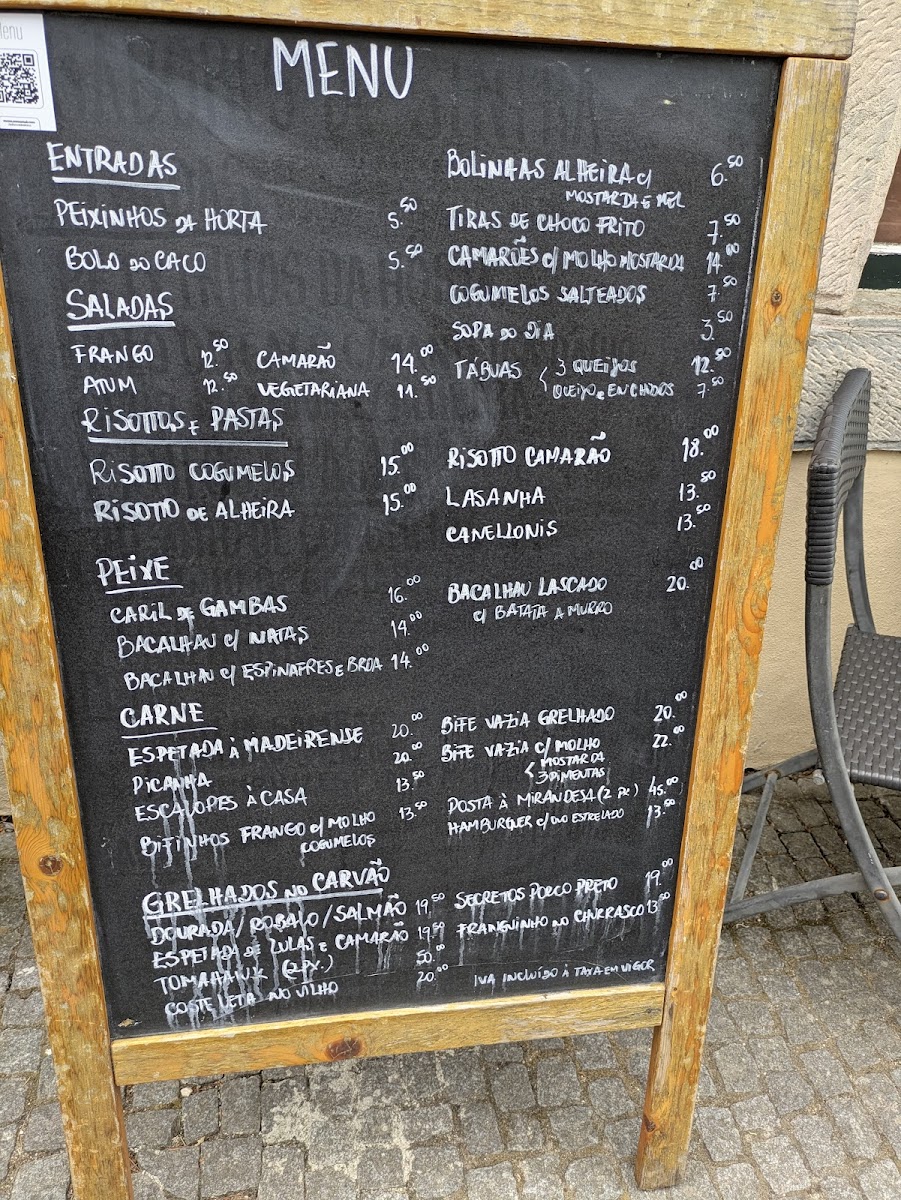 Menu
MENU
ENTRADAS
PEIXINHOS DA HORTA 5.50
BOLO DO CACO 5.50
BOLINHAS ALHEIRA c/ 6.50
MOSTARDA E MEL
TIRAS DE CHOCO FRITO 7.50
CAMARÕES c/ MOLHO MOSTARDA 14.00
COGUMELOS SALTEADOS 7.50
SOPA DO DIA 3.50
TÁBUAS 3 QUEIJOS 12.50
QUEIJO E ENCHIDOS 7.50
SALADAS
FRANGO 12.50 CAMARÃO 14.00
ATUM 12.50 VEGETARIANA 11.50
RISOTTOS E PASTAS
RISOTTO COGUMELOS 15.00
RISOTTO DE ALHEIRA 15.00
RISOTTO CAMARÃO 18.00
LASANHA 13.50
CANELLONIS 13.50
PEIXE
CARIL DE GAMBAS 16.00
BACALHAU c/ NATAS 14.00
BACALHAU c/ ESPINAFRES E BROA 14.00
BACALHAU LASCADO 20.00
c/ BATATA A MURRO
CARNE
ESPETADA À MADEIRENSE 20.00
PICANHA 20.00
ESCALOPES À CASA 13.50
BIFINHOS FRANGO c/ MOLHO 13.50
COGUMELOS
BIFE VAZIA GRELHADO 20.00
BIFE VAZIA c/ MOLHO 22.00
MOSTARDA
3 PIMENTAS
POSTA À MIRANDESA (2 px.) 45.00
HAMBURGUER c/ OVO ESTRELADO 13.50
GRELHADOS NO CARVÃO
DOURADA/ROBALO/SALMÃO 19.50
ESPETADA DE LULAS E CAMARÃO 19.50
TOMAHAWK (2 px.) 50.00
COSTELETA NO VILHO 20.00
SECRETOS PORCO PRETO 19.00
FRANGUINHO NO CHURRASCO 13.50
IVA INCLUÍDO À TAXA EM VIGOR